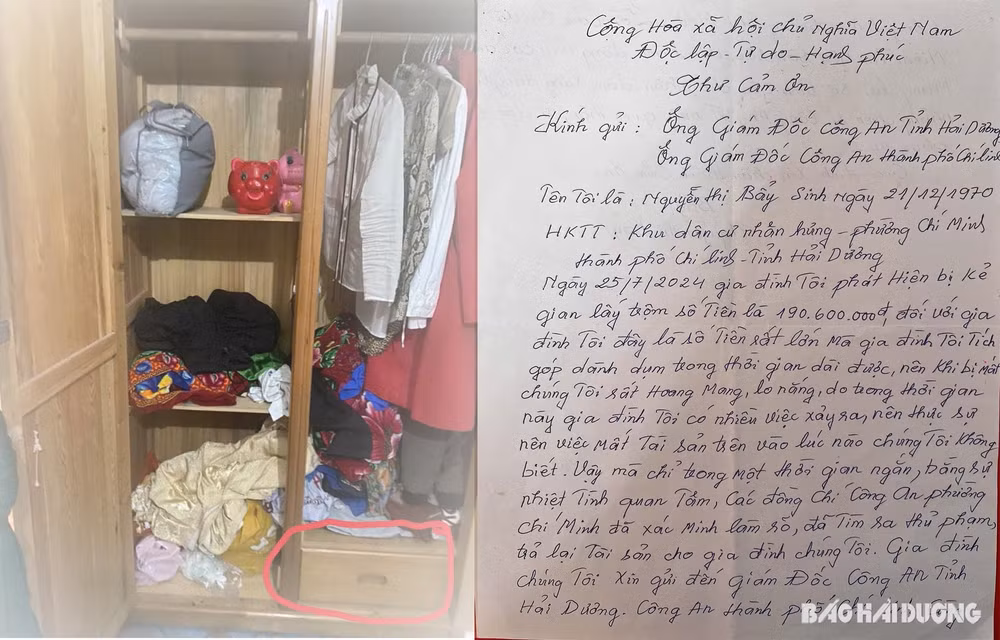 Cộng Hòa xã hội chủ nghĩa Việt Nam
Độc lập - Tự do - Hạnh phúc
Thư Cảm Ơn
Kính gửi : Ông Giám Đốc Công An Tỉnh Hải Dương
Ông Giám Đốc Công An thành phố Chí Linh
Tên Tôi là : Nguyễn Thị Bẩy Sinh Ngày 21/12/1970
HKTT : Khu dân cư nhân hưng - phường Chí Minh
thành phố Chí Linh - Tỉnh Hải Dương
Ngày 25/7/2024 gia đình Tôi phát Hiện bị Kẻ
gian lấy trộm số Tiền là 190.600.000đ, đối với gia
đình Tôi đây là số Tiền rất lớn mà gia đình Tôi Tích
góp dành dum trong thời gian dài được, nên Khi bị mất
chúng Tôi rất Hoang Mang, lo nắng, do trong thời gian
này gia đình Tôi có nhiều việc xảy ra, nên thực sự
nên việc mất Tài sản trên vào lúc nào chúng Tôi không
biết. Vậy mà chỉ trong một thời gian ngắn, bằng sự
nhiệt Tình quan Tâm, Các đồng Chí Công An phường
Chí Minh đã xác Minh làm rõ, đã Tìm ra thủ phạm,
trả lại Tài sản cho gia đình chúng Tôi. Gia đình
chúng Tôi xin gửi đến giám Đốc Công An Tỉnh
Hải Dương. Công An thành phố
BÁO HẢI DƯƠNG